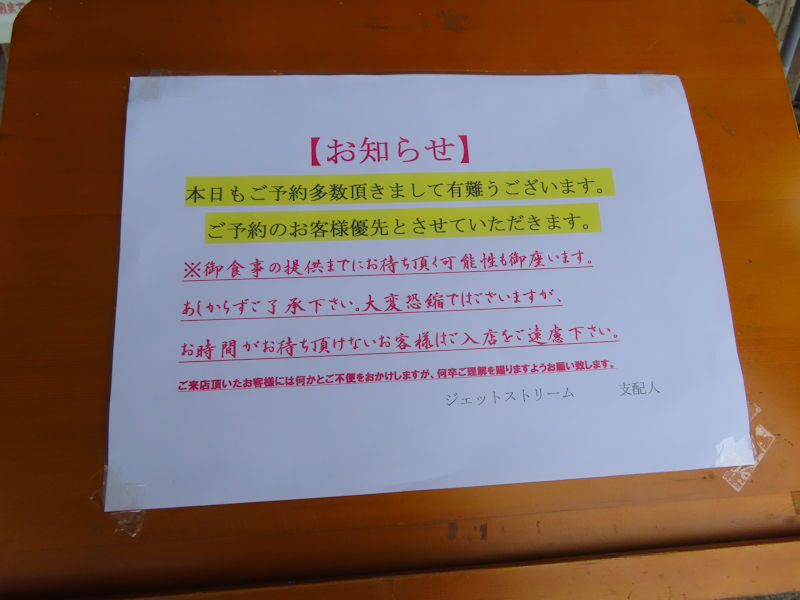 【お知らせ】
本日もご予約多数頂きまして有難うございます。
ご予約のお客様優先とさせていただきます。
※御食事の提供までにお待ち頂く可能性も御座います。
あしからずご了承下さい。大変恐縮ではございますが、
お時間がお待ち頂けないお客様はご入店をご遠慮下さい。
ご来店頂いたお客様には何かとご不便をおかけしますが、何卒ご理解を賜りますようお願い致します。
ジェットストリーム 支配人